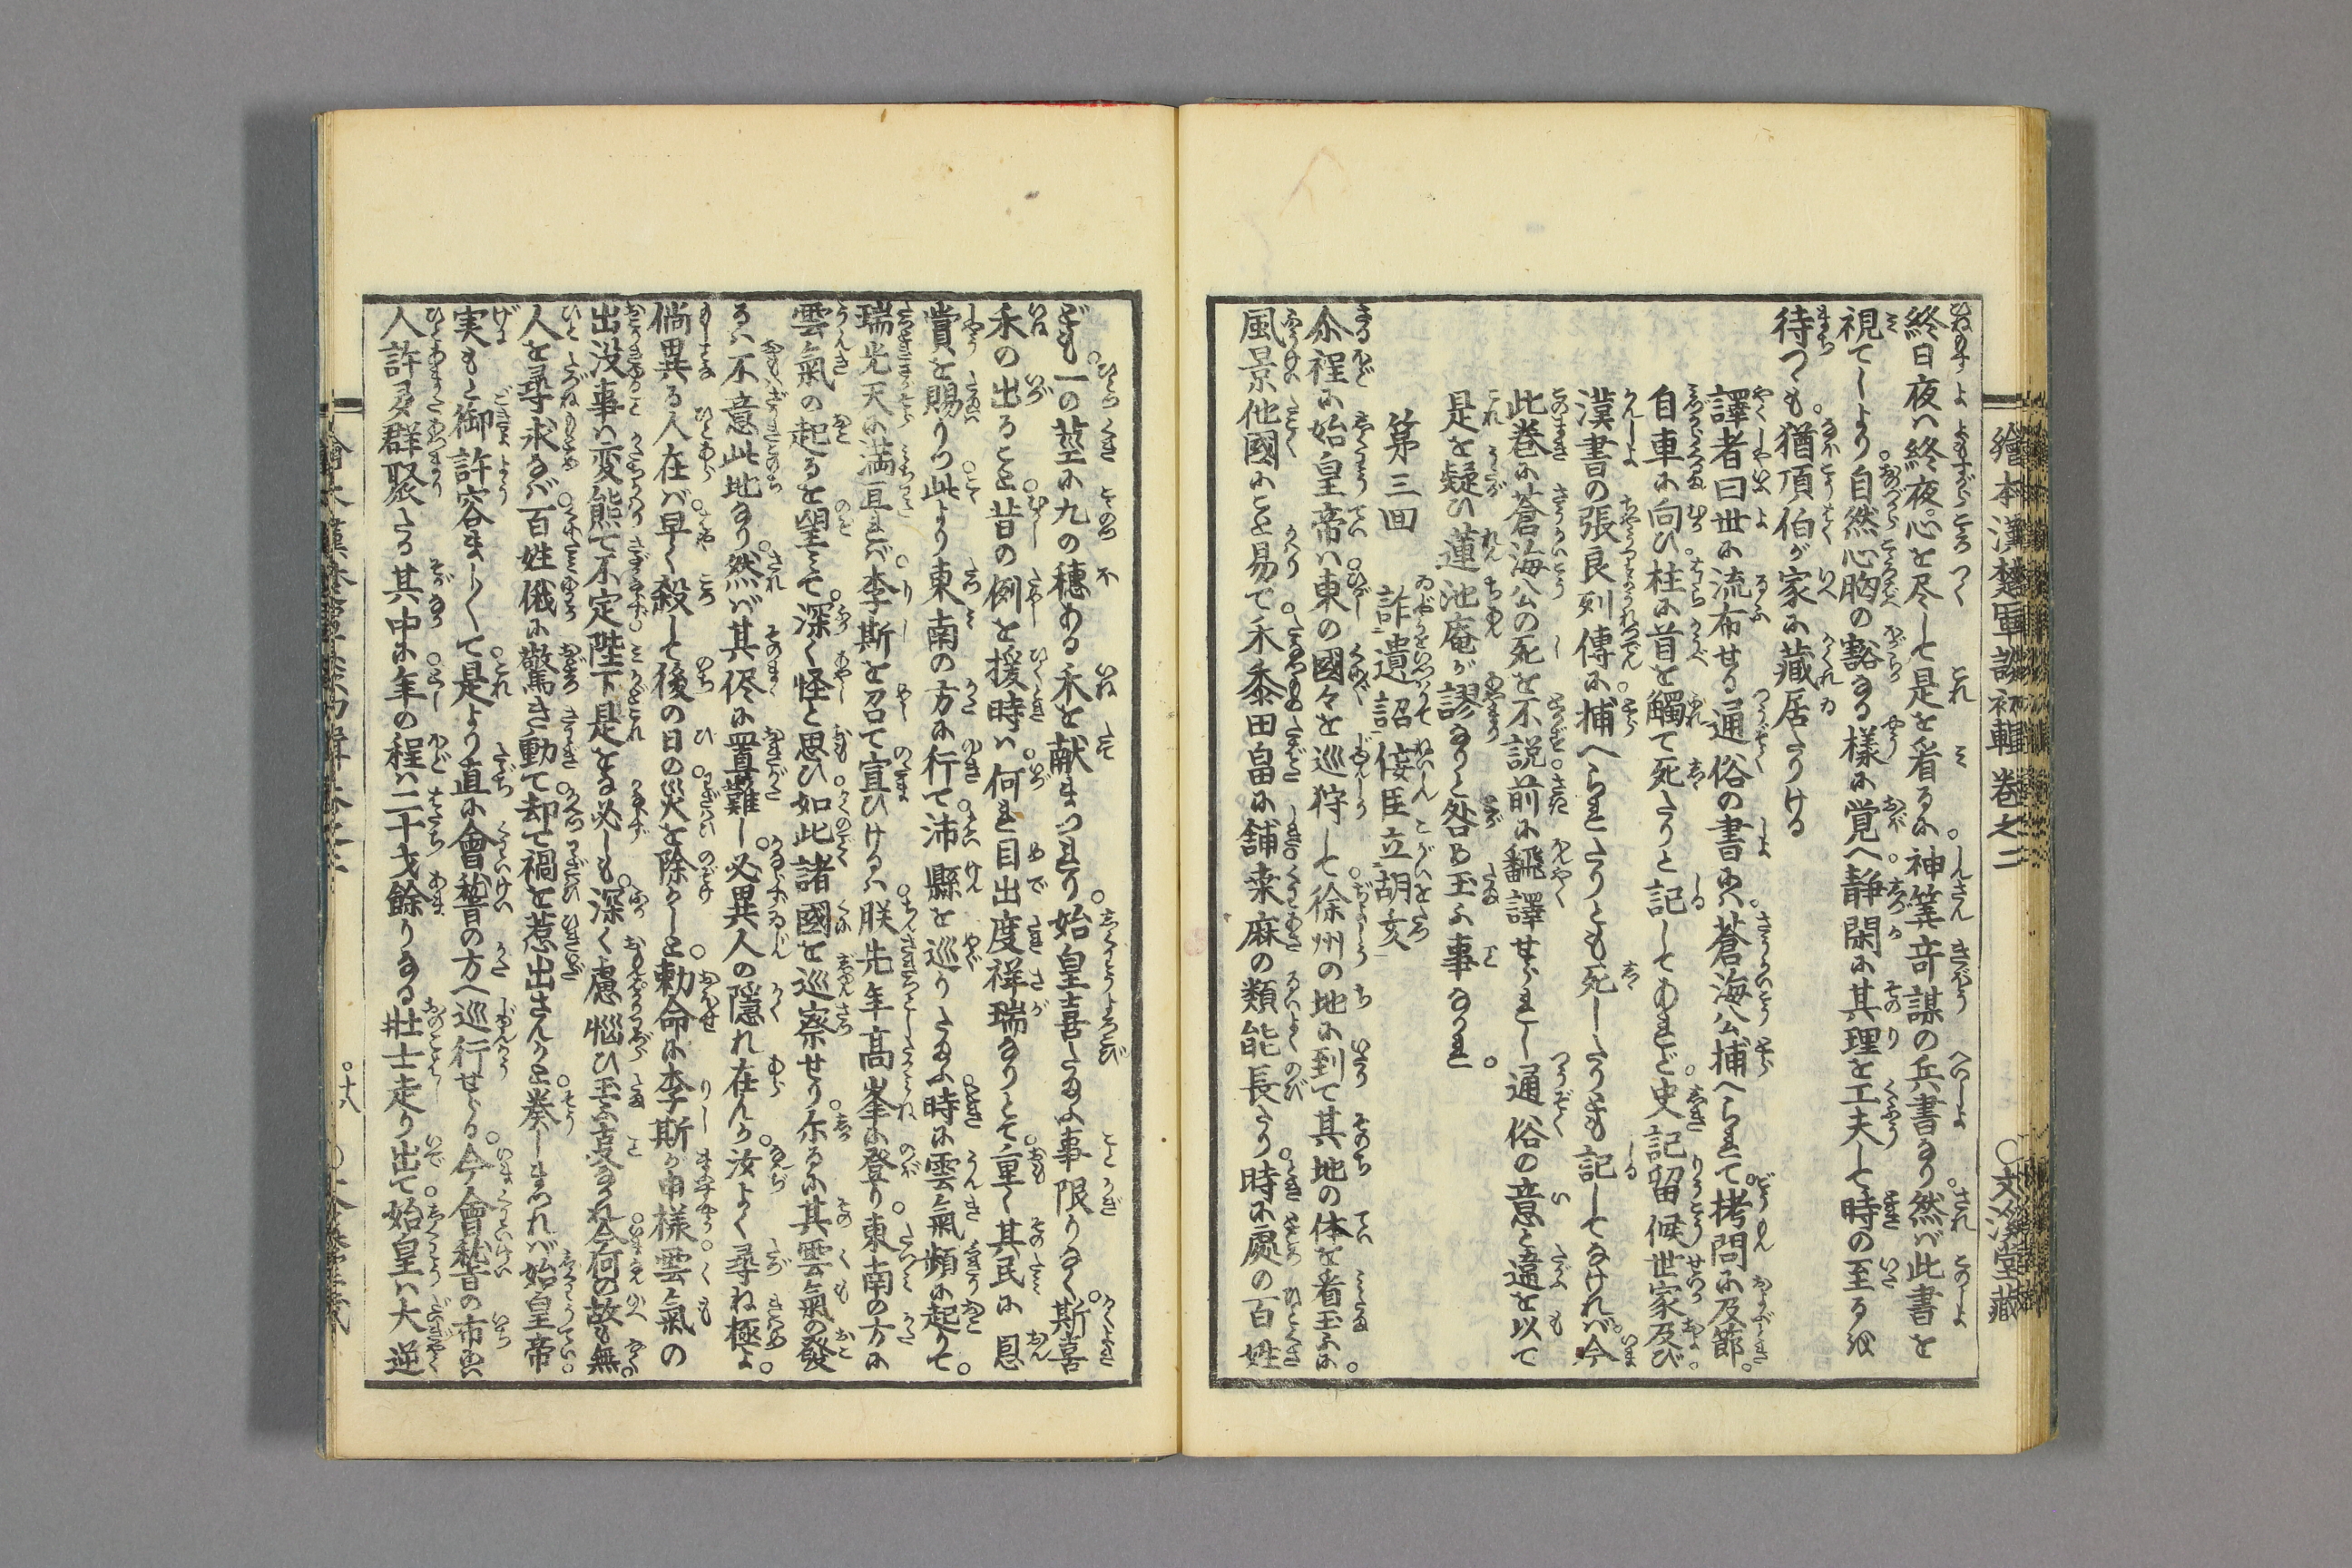 繪本漢楚軍談初輯 巻之二 ○文溪堂藏
終日夜ハ終夜心を尽して是を看るに神筭竒謀の兵書なり然バ此書を
視てしより自然心胸の豁なる樣に覚へ静閑に其理を工夫して時の至るを
待つゝも猶項伯が家に藏居たりける
譯者曰世に流布せる通俗の書にハ蒼海公捕へられて拷問に及節
自車に向ひ柱に首を觸て死たりと記してあれど史記留候世家及び
漢書の張良列傳に捕へられたりとも死したりとも記してなけれバ今
此巻に蒼海公の死を不説前に飜譯せられし通俗の意と違を以て
是を疑ひ蓮池庵が謬なりと咎め玉ふ事なかれ
第三回 詐遺詔侫臣立胡亥
尒程に始皇帝ハ東の國々を巡狩して徐州の地に到て其地の体を看玉ふに
風景他國にこと易て禾黍田畠に舗桒麻の類能長たり時に處の百姓
ども一の莖に九の穗ある禾を献まつれり始皇喜たまふ事限りなく斯喜
禾の出ること昔の例を援時ハ何れ目出度祥瑞なりとて重く其民に恩
賞を賜りつ此より東南の方に行て沛縣を巡りたまふ時に雲氣頻に起りて
瑞光天に満亘れバ李斯を召て宣ひけるハ朕先年高峯に登り東南の方に
雲氣の起るを望みて深く怪と思ひ如此諸國を巡察せり尓るに其雲氣の發
るハ不意此地なり然バ其侭に置難し必異人の隱れ在んか汝よく尋ね極よ
倘異る人在バ早く殺して後の日の災を除くしと勅命に李斯が申樣雲氣の
出没事ハ変態て不定陛下是をゟ必しも深く慮惱ひ玉ふ亊なかれ今何の故も無
人を尋求なバ百姓俄に驚き動て却て禍を惹出さんかと奏しまつれバ始皇帝
実もと御許容ましくて是より直に會稽の方へ巡行せらる今會稽の市にハ
人許多群聚たる其中に年の程ハ二十才餘りなる壮士走り出て始皇ハ大逆
○十八